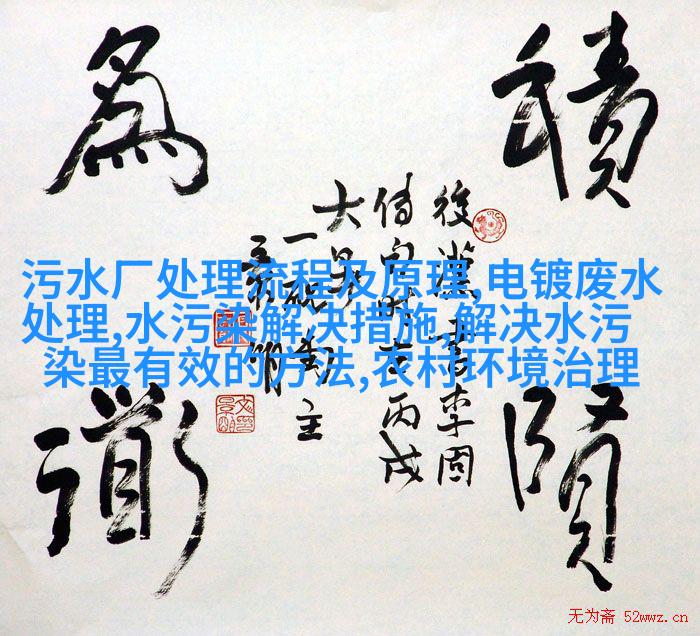 積賢
為衜
後漢書李固
傳句時在丙戌
大暑
一硯主
污水厂处理流程及原理,电镀废水
处理,水污染解决措施,解决水污
染最有效的方法,农村环境治理
无为斋 52wwz.cn